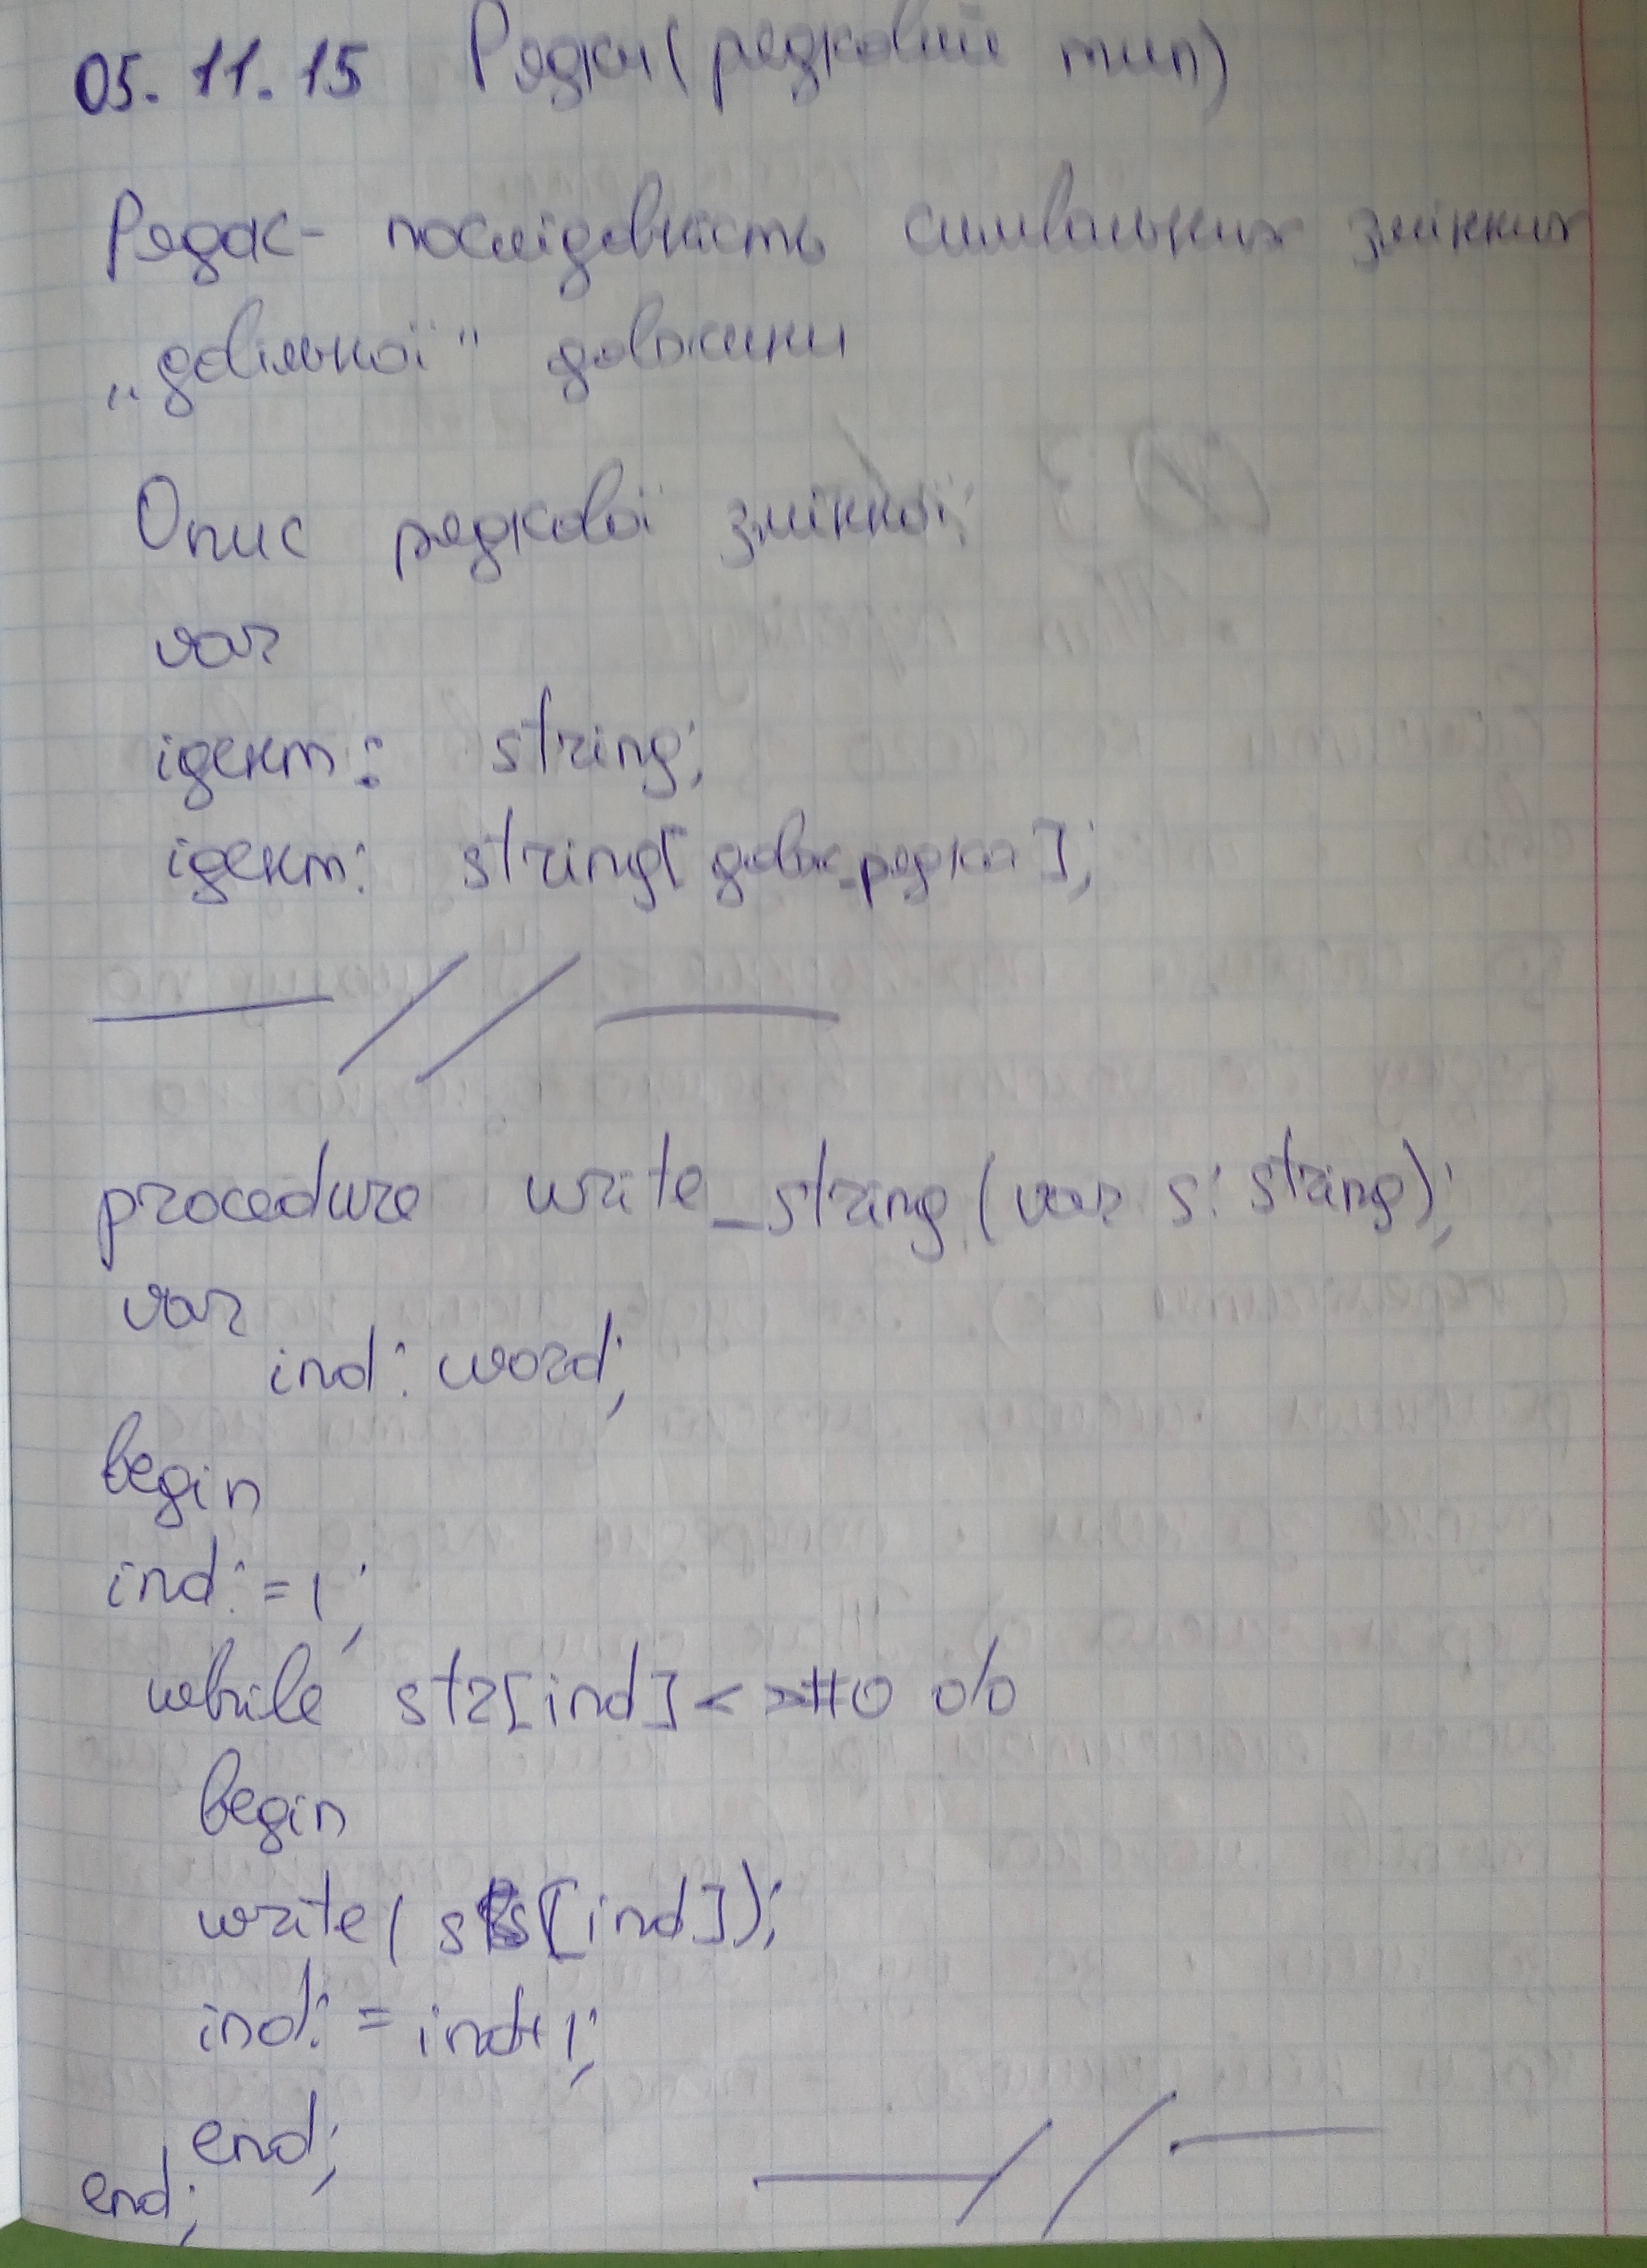 05.11.15 Рядки (рядковий тип)
Рядок - послідовність символьних змінних
„довільної" довжини
Опис рядкової змінної:
var
ідент: string;
ідент: string[довж_рядка];
procedure write_string (var s: string);
var
ind: word;
begin
ind:=1;
while str[ind]<>#0 do
begin
write(s[ind]);
ind:=ind+1;
end;
end;